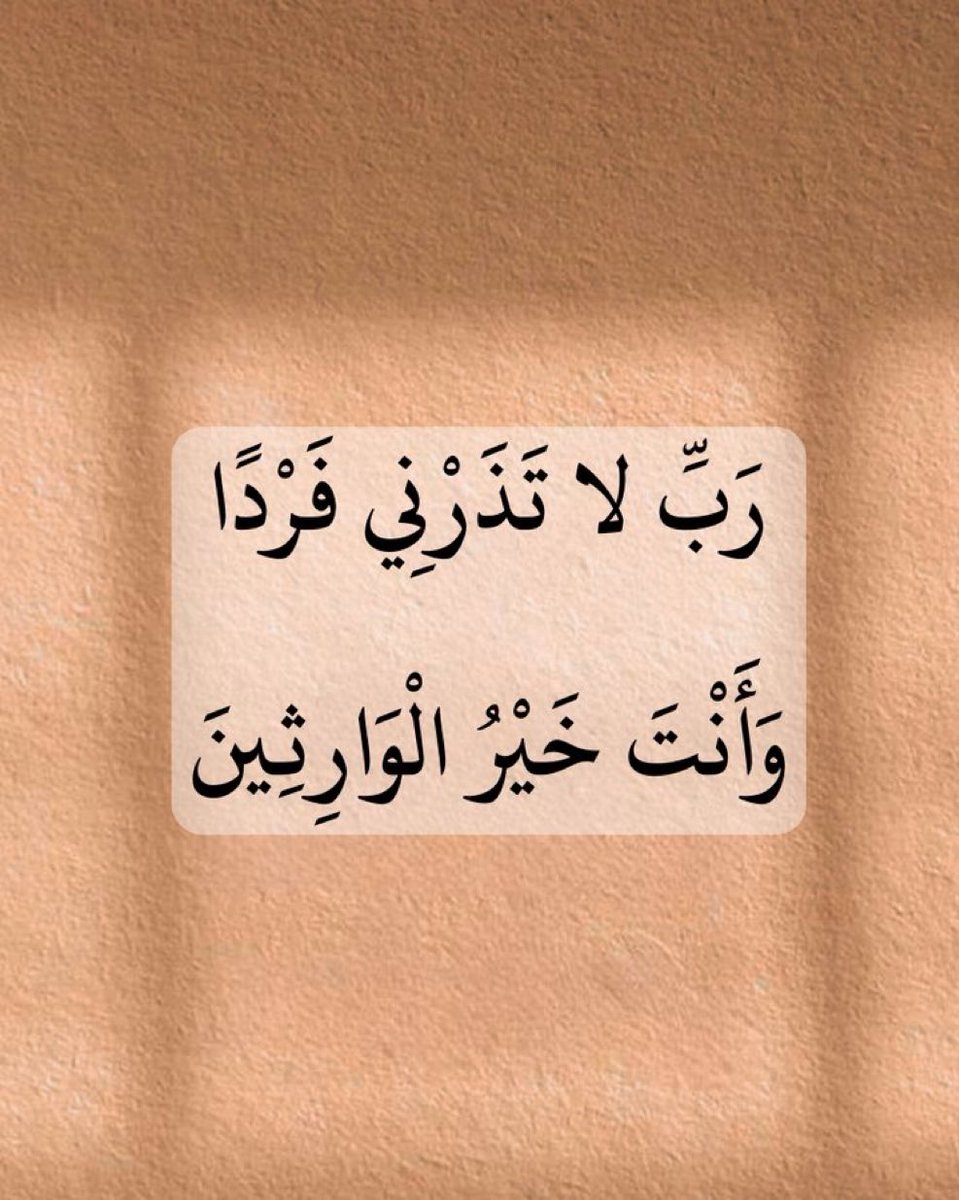 رَبِّ لا تَذَرْنِي فَرْدًا
وَأَنْتَ خَيْرُ الْوَارِثِينَ